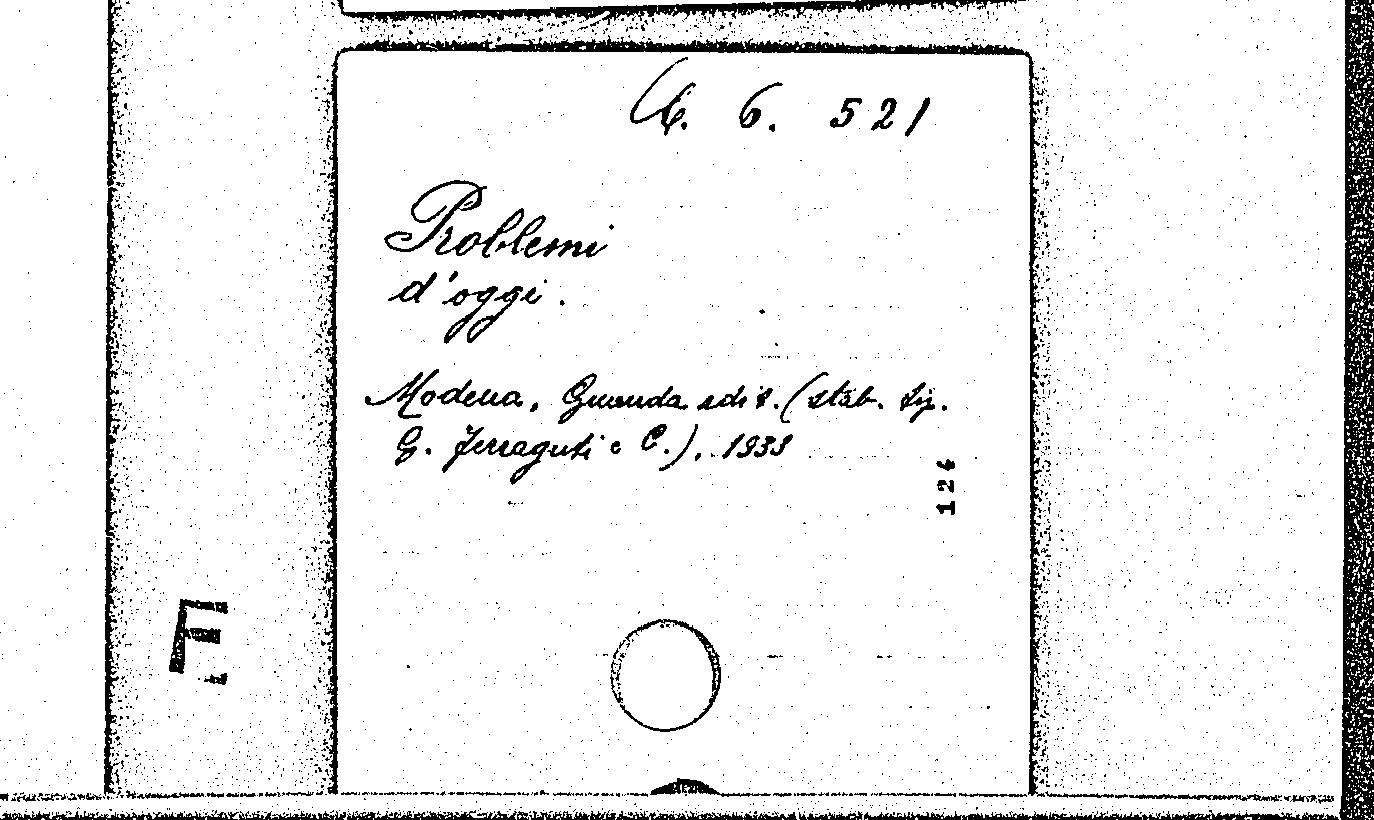 6. 6. 521
Problemi
d'oggi.
Modena, Guanda edit. (stab. tip.
G. Ferraguti e C.). 1933
126
E